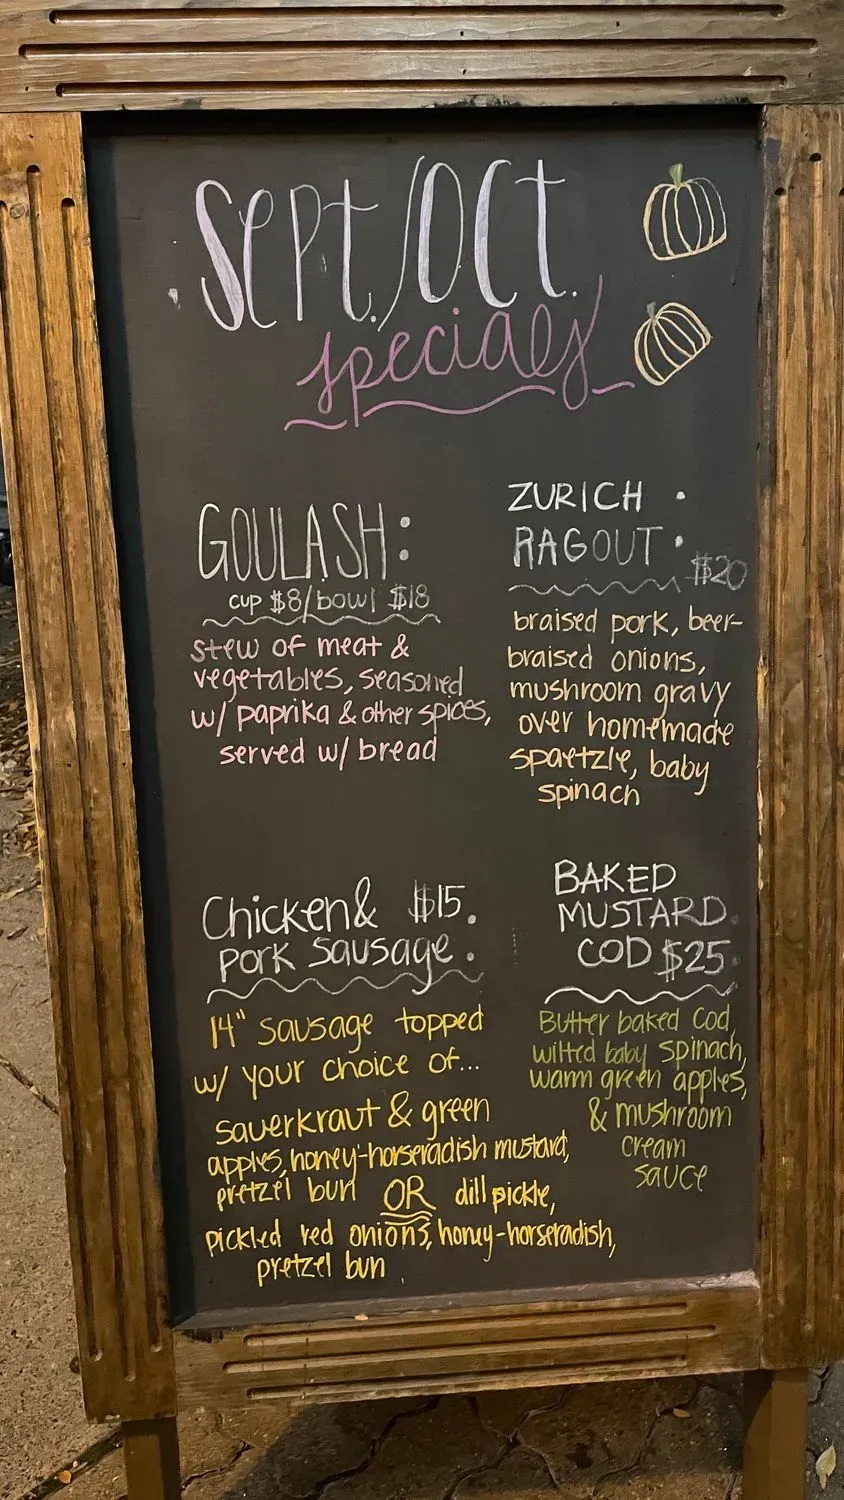 Sept./Oct.
specials
GOULASH:
cup $8/bowl $18
stew of meat &
vegetables, seasoned
w/ paprika & other spices,
served w/ bread
ZURICH
RAGOUT:
$20
braised pork, beer-
braised onions,
mushroom gravy
over homemade
spaetzle, baby
spinach
Chicken & $15
pork sausage:
14" sausage topped
w/ your choice of...
sauerkraut & green
apples, honey-horseradish mustard,
pretzel bun OR dill pickle,
pickled red onions, honey-horseradish,
pretzel bun
BAKED
MUSTARD
COD $25:
Butter baked cod,
wilted baby spinach,
warm green apples,
& mushroom
cream
sauce